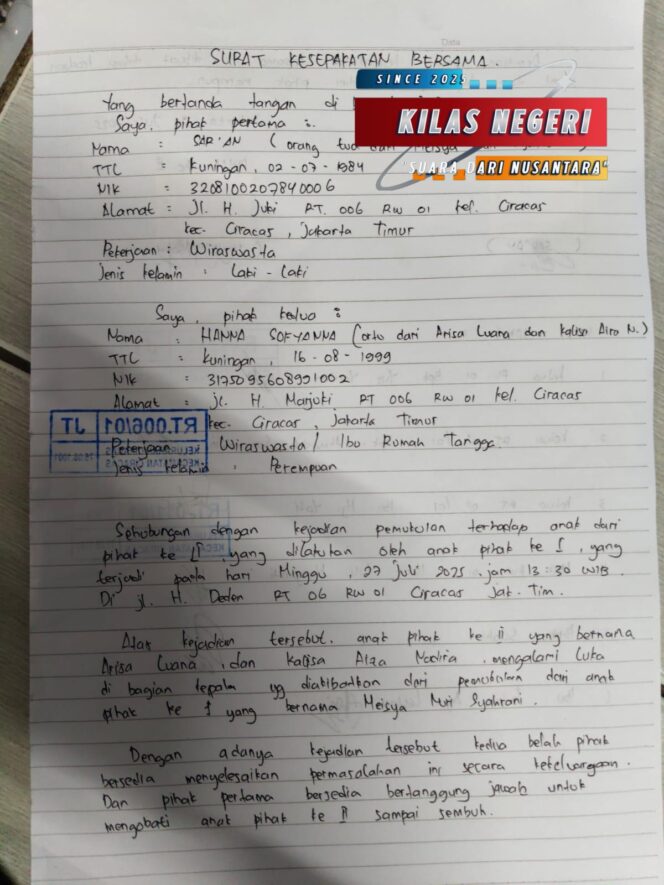 Data
SURAT KESEPAKATAN BERSAMA.
SINCE 2025
KILAS NEGERI
"SUARA DARI NUSANTARA"
Yang bertanda tangan di
Saya, pihak pertama :.
Nama : SAR'AN ( orang tua dari Meisya
TTL : Kuningan, 02-07-1984
NIK : 3208100207840006
Alamat : Jl. H. Juki RT. 006 RW 01 kel. Ciracas
kec. Ciracas, Jakarta Timur
Pekerjaan : Wiraswasta
Jenis kelamin : Laki - Laki
Saya, pihak kedua :
Nama : HANNA SOFYANNA (ortu dari Arisa Luana dan Kalisa Aira N.)
TTL : Kuningan, 16-08-1999
NIK : 3175095608991002
Alamat : jl. H Marjuki RT 006 RW 01 kel. Ciracas
kec. Ciracas, Jakarta Timur
RT.006/01 JT
Pekerjaan : Wiraswasta / Ibu Rumah Tangga.
Jenis kelamin : Perempuan
Sehubungan dengan kejadian pemukulan terhadap anak dari
pihak ke II, yang dilakukan oleh anak pihak ke I, yang
terjadi pada hari Minggu, 27 Juli 2025, jam 13:30 WIB.
Di jl. H. Deden RT 06 RW 01 Ciracas Jak-Tim.
Atas kejadian tersebut, anak pihak ke II yang bernama
Arisa Luana, dan Kalisa Aiza Nadira, mengalami Luka
di bagian kepala yg diakibatkan dari pemukulan dari anak
pihak ke I yang bernama Meisya Nuri Syahrani.
Dengan adanya kejadian tersebut kedua belah pihak
bersedia menyelesaikan permasalahan ini secara kekeluargaan.
Dan pihak pertama bersedia bertanggung jawab untuk
mengobati anak pihak ke II sampai sembuh.